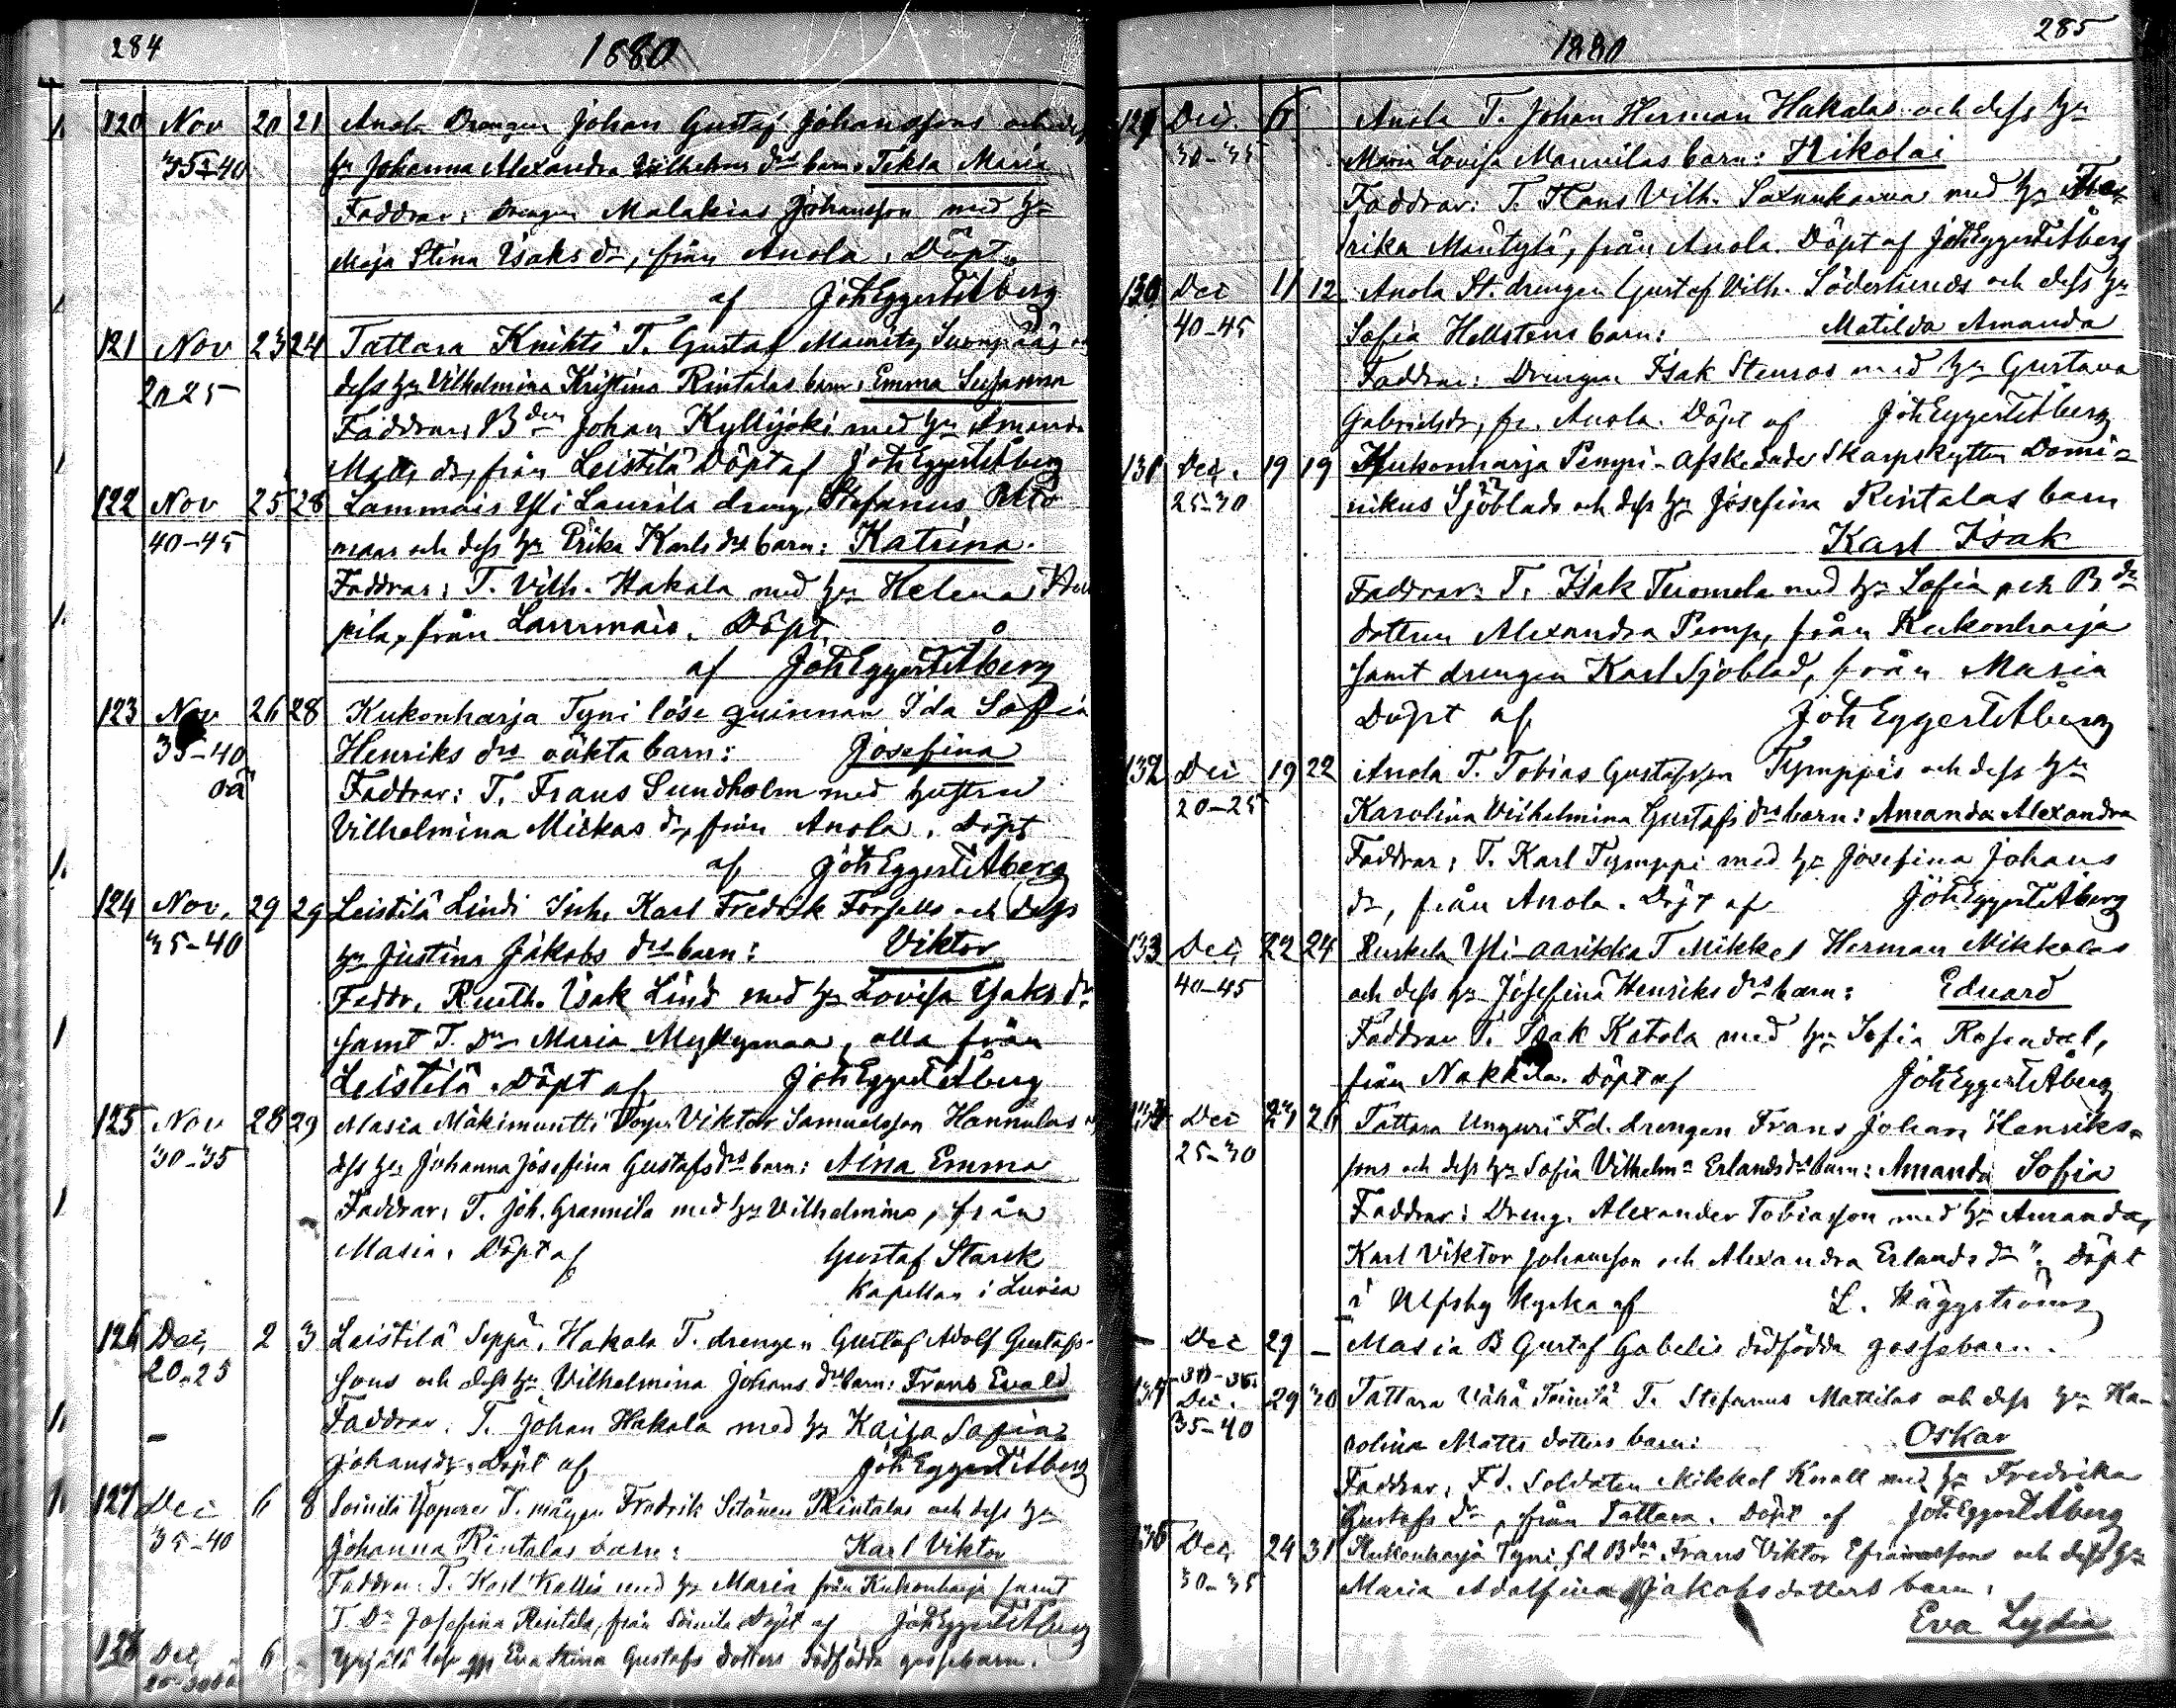 284
1880
120 Nov 20 21 Anola Drengen Johan Gustaf Johanssons och dess
35-40 hu Johanna Alexandra Vilhelms drs barn: Tekla Maria
Faddrar: Drengen Malakias Johansson med hu
Maja Stina Isaks dr, från Anola. Döpt
af Joh Eggert Åberg
121 Nov 23 24 Tattara Knihti T. Gustaf Mauritz Suompääs
20-25 dess hu Vilhelmina Kristina Rintalas barn: Emma Susanna
Faddrar: Bden Johan Kyllijoki med hu Amanda
Matts dr, från Leistilä Döpt af Joh Eggert Åberg
122 Nov 25 28 Lammais Yli Laurila dreng. Stefanus
40-45 och dess hu Erika Karls drs barn: Katrina.
Faddrar: T. Vilh. Hakala med hu Helena
pila, från Lammais. Döpt
af Joh Eggert Åberg
123 Nov 26 28 Kukonharja Tyni lösa quinnan Ida Sofia
35-40 Henriks drs oäkta barn: Josefina
oä Faddrar: T. Frans Sundholm med hustru
Vilhelmina Mickas dr, från Anola. Döpt
af Joh Eggert Åberg
124 Nov. 29 29 Leistilä Lindi Inh. Karl Fredrik Forsells och dess
35-40 hu Justina Jakobs drs barn: Viktor
Faddr. Rusth. Isak Lind med hu Lovisa Isaks dr
samt T. Dr Maria Myllymaa, alla från
Leistilä. Döpt af Joh Eggert Åberg
125 Nov 28 29 Masia Mäkimuntti Torp. Viktor Samuelsson Hannulas
30-35 dess hu Johanna Josefina Gustafs drs barn: Alma Emma
Faddrar: T. Joh. Grannila med hu Vilhelmina, från
Masia. Döpt af Gustaf Starck
Kapellan i Luvia
126 Dec. 2 3 Leistilä Seppä, Hakala T. drengen Gustaf Adolf Gustafs-
20-25 sons och dess hu Vilhelmina Johans drs barn: Frans Evald
- Faddrar. T. Johan Hakala med hu Kaisa Sofia
Johansdr. Döpt af Joh Eggert Åberg
127 Dec 6 8 Soinila T. mågen Fredrik Rintalas och dess hu
35-40 Johanna Rintalas barn: Karl Viktor
Faddrar: T. Karl Kallis med hu Maria från Kukonharja samt
T. Dr Josefina Rintala, från Soinila Döpt af Joh Eggert Åberg
128 Dec 6 - Yrjälä lösa qp Eva Stina Gustafs dotters dödfödda gossebarn.
285
1880
129 Dec. 6 Anola T. Johan Herman Hakalas och dess hu
30-35 Maria Lovisa Mannilas barn: Nikolai
Faddrar: T. Hans Vilh. med hu
rika Mäntylä, från Anola. Döpt af Joh Eggert Åberg
130 Dec 11 12 Anola St. drengen Gustaf Vilh. Söderlunds och dess hu
40-45 Sofia Hellstens barn: Matilda Amanda
Faddrar: Drengen Isak Stenros med hu Gustava
Gabrielsdr, fr. Anola. Döpt af Joh Eggert Åberg
131 Dec. 19 19 Kukonharja Pempi-afskedade Skarpskytten Domi-
25-30 nikus Sjöblads och dess hu Josefina Rintalas barn
Karl Isak
Faddrar: T. Isak Tuomela med hu Sofia och Bde
dottren Alexandra Pemp, från Kukonharja
samt drengen Karl Sjöblad, från Masia
Döpt af Joh Eggert Åberg
132 Dec 19 22 Anola T. Tobias Gustafsson Tymppis och dess hu
20-25 Karolina Vilhelmina Gustafs drs barn: Amanda Alexandra
Faddrar: T. Karl Tymppi med hu Josefina Johans
dr, från Anola. Döpt af Joh Eggert Åberg
133 Dec. 22 24 Ruskela Yli-aarikka T Mikkel Herman Mikkolas
40-45 och dess hu Josefina Henriks drs barn: Eduard
Faddrar T. Isak Katola med hu Sofia Rosendal,
från Nakkila. Döpt af Joh Eggert Åberg
134 Dec 23 26 Tattara Unguri Fd. drengen Frans Johan Henriks-
25-30 sons och dess hu Sofia Vilhelma Erlandsdrs barn: Amanda Sofia
Faddrar: Dreng. Alexander Tobiasson med hu Amanda,
Karl Viktor Johansson och Alexandra Erlands dr. Döpt
i Ulfsby kyrka af L. Häggström
- Dec 29 - Masia B Gustaf Gabelis dödfödda gossebarn.
30-35
135 Dec. 29 30 Tattara Vähä Toinila T. Stefanus Mattilas och dess hu Ka-
35-40 rolina Matts dotters barn: Oskar
Faddrar: Fd. Soldaten Mikkel Knall med hu Fredrika
Gustafs dr, från Tattara. Döpt af Joh Eggert Åberg
136 Dec. 24 31 Kukonharja Tyni fd Bden Frans Viktor Efraimssons och dess hu
30-35 Maria Adolfina Jakobsdotters barn.
Eva Lydia